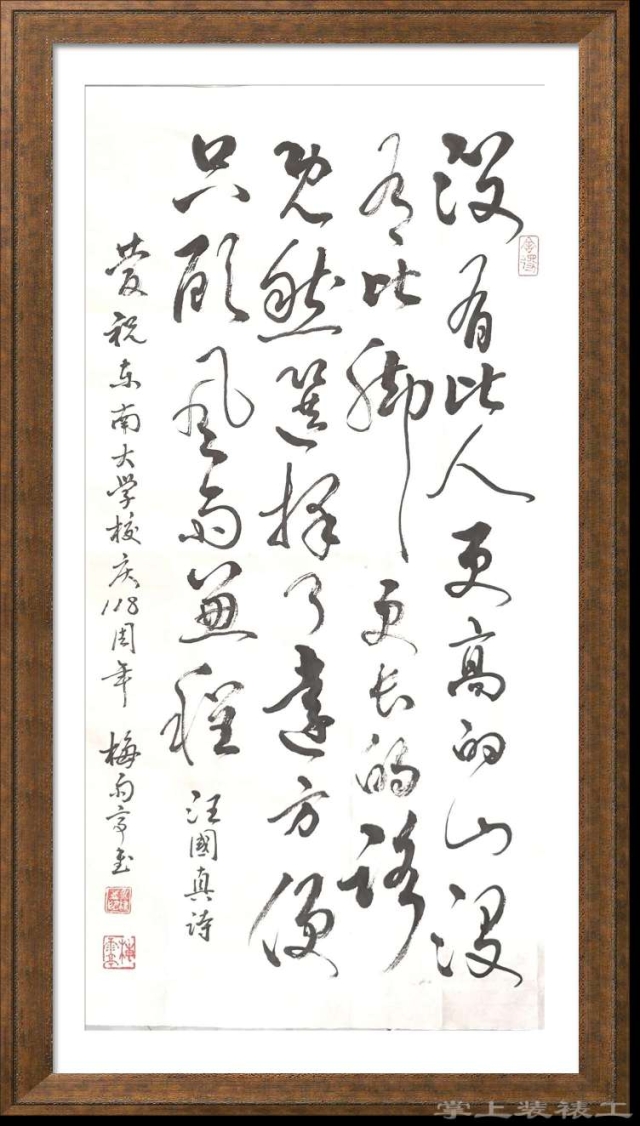 没有比人更高的山没
有比脚更长的路
既然选择了远方便
只顾风雨兼程
汪國真诗
慶祝东南大学校庆118周年 梅雨亭书
梅雨亭
掌上装裱工